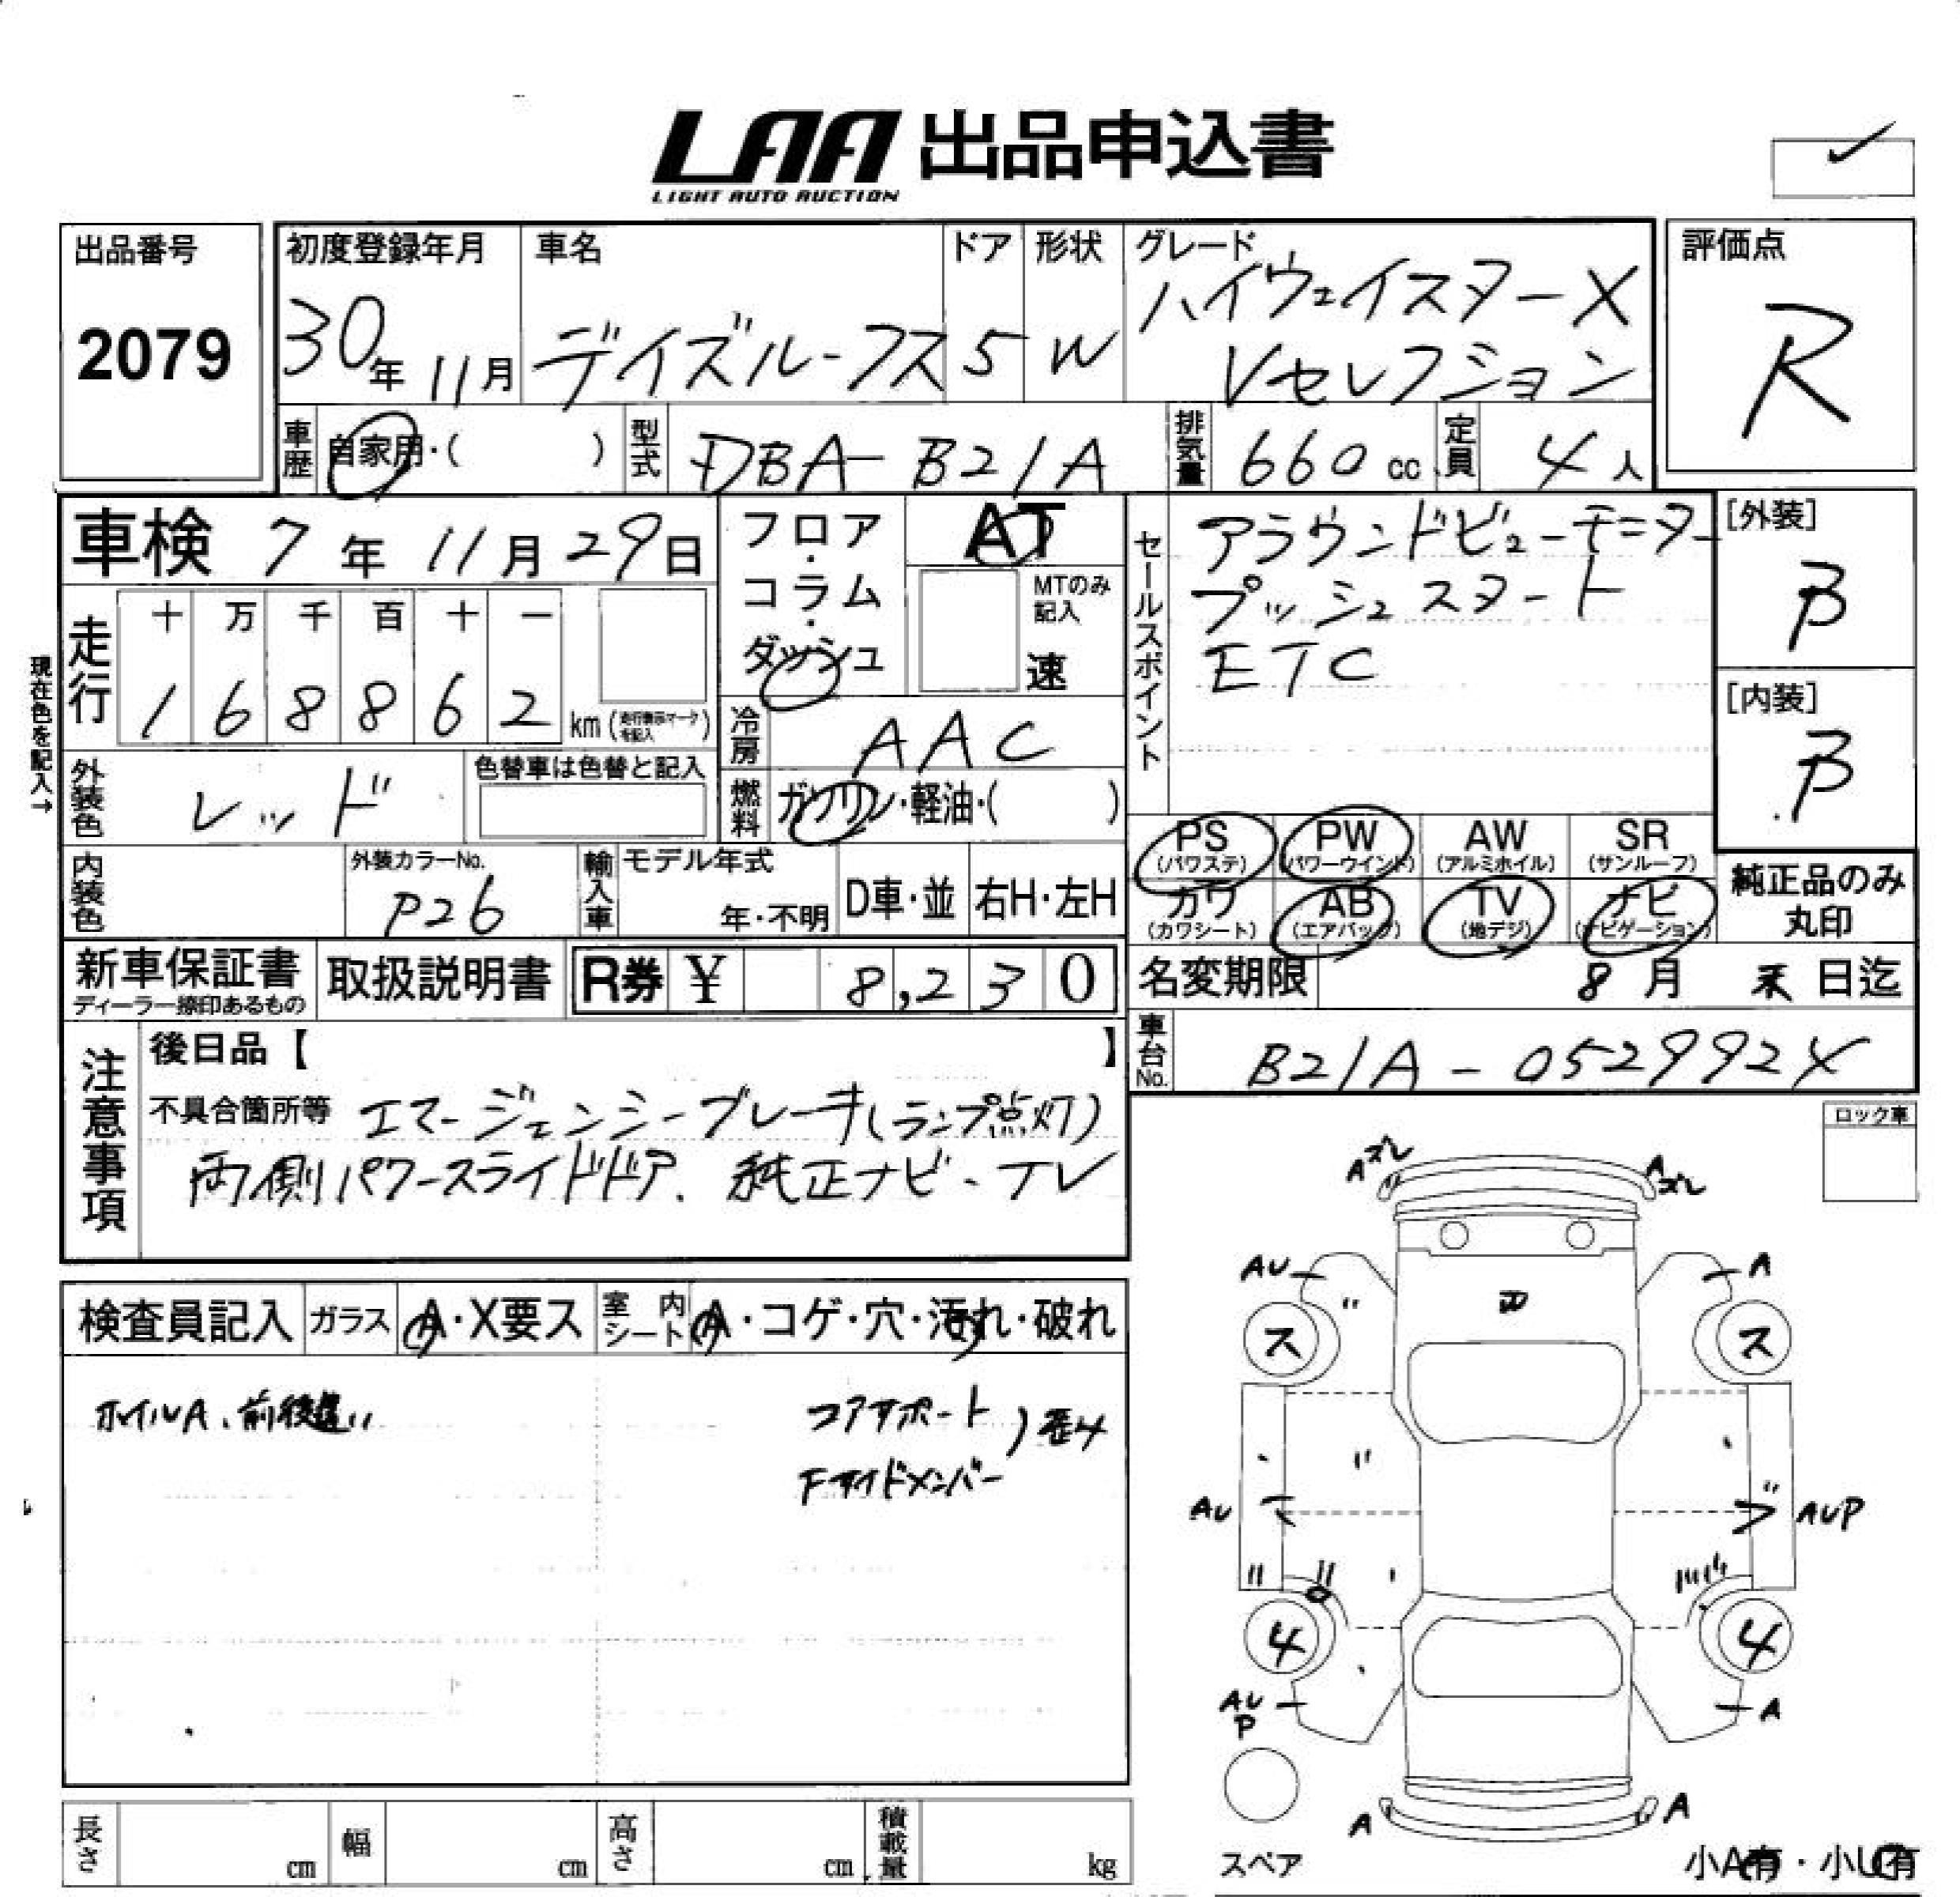 LAA 出品申込書
LIGHT AUTO AUCTION
出品番号
2079
初度登録年月
30年 11月
車名
デイズルークス
ドア
5
形状
W
グレード
ハイウェイスターX
Vセレクション
評価点
R
車歴
自家用・( )
型式
DBA-B21A
排気量
660 cc
定員
4人
車検 7年 11月 29日
フロア・コラム・ダッシュ
AT
MTのみ記入
速
セールスポイント
アラウンドビューモニター
プッシュスタート
ETC
[外装]
B
[内装]
B
現在色を記入→
走行
十 万 千 百 十 一
1 6 8 8 6 2 km (走行表示マークを記入)
冷房
AAC
外装色
レッド
色替車は色替と記入
燃料
ガソリン・軽油・( )
PS (パワステ)
PW (パワーウインド)
AW (アルミホイル)
SR (サンルーフ)
カワ (カワシート)
AB (エアバック)
TV (地デジ)
ナビ (ナビゲーション)
純正品のみ
丸印
内装色
外装カラーNo.
P26
輸入車
モデル年式
年・不明
D車・並
右H・左H
新車保証書
取扱説明書
R券 ¥ 8,230
名変期限 8月 末日迄
車台No.
B21A-052992X
注意事項
後日品【 】
不具合箇所等 エマージェンシーブレーキ(ランプ点灯)
両側パワースライドドア. 純正ナビ-TV
ロック車
検査員記入
ガラス
A・X要ス
室内シート
A・コゲ・穴・汚れ・破れ
ホイルA、前後違い
コアサポート
Fサイドメンバー
歪4
Aズレ
Aズレ
AU
A
ス
ス
AU
AUP
4
4
AU
P
A
A
A
スペア
小A有・小U有
長さ cm
幅 cm
高さ cm
積載量 kg